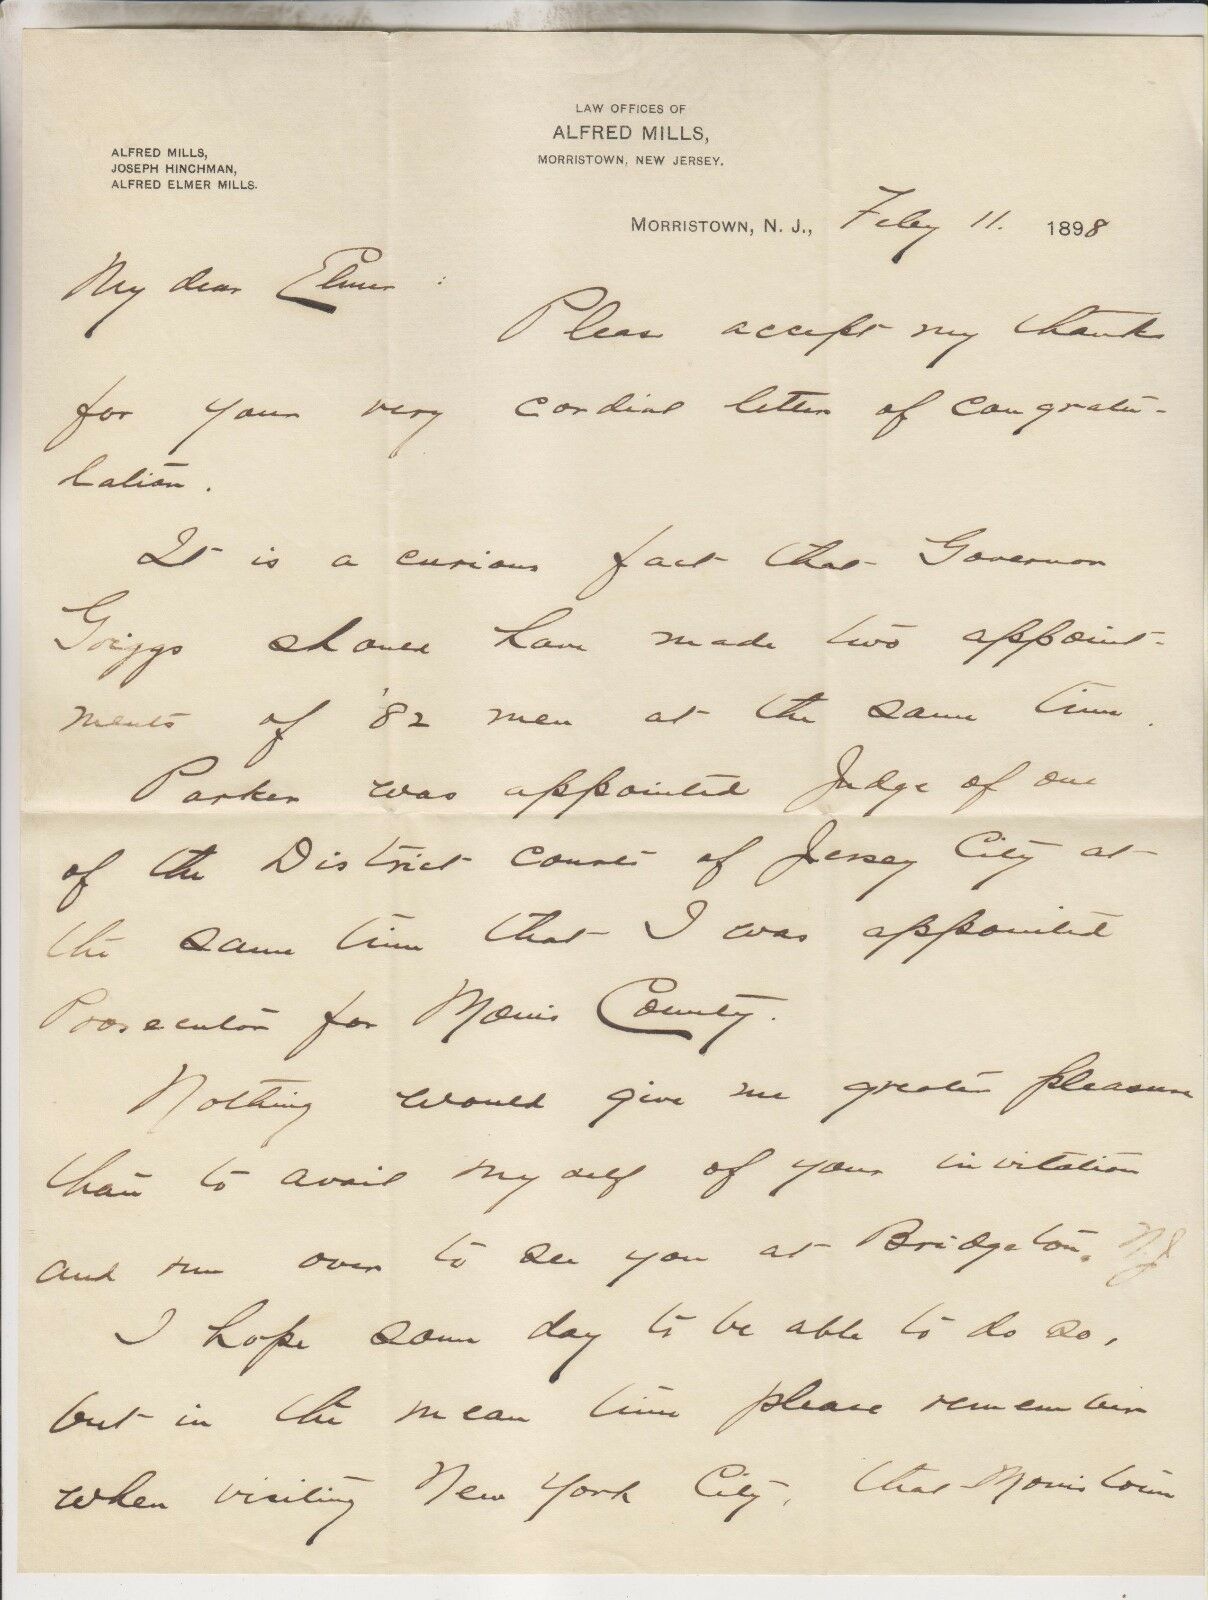 LAW OFFICES OF
ALFRED MILLS,
MORRISTOWN, NEW JERSEY.
ALFRED MILLS,
JOSEPH HINCHMAN,
ALFRED ELMER MILLS.
MORRISTOWN, N. J., Feby 11. 1898
My dear Elmer :
Please accept my thanks
for your very cordial letter of congratu-
lation.
It is a curious fact that Governor
Griggs should have made two appoint-
ments of '82 men at the same time.
Parker was appointed Judge of one
of the District courts of Jersey City at
the same time that I was appointed
Prosecutor for Morris County.
Nothing would give me greater pleasure
than to avail myself of your invitation
and run over to see you at Bridgeton. NJ
I hope some day to be able to do so,
but in the mean time please remember
when visiting New York City, that Morristown